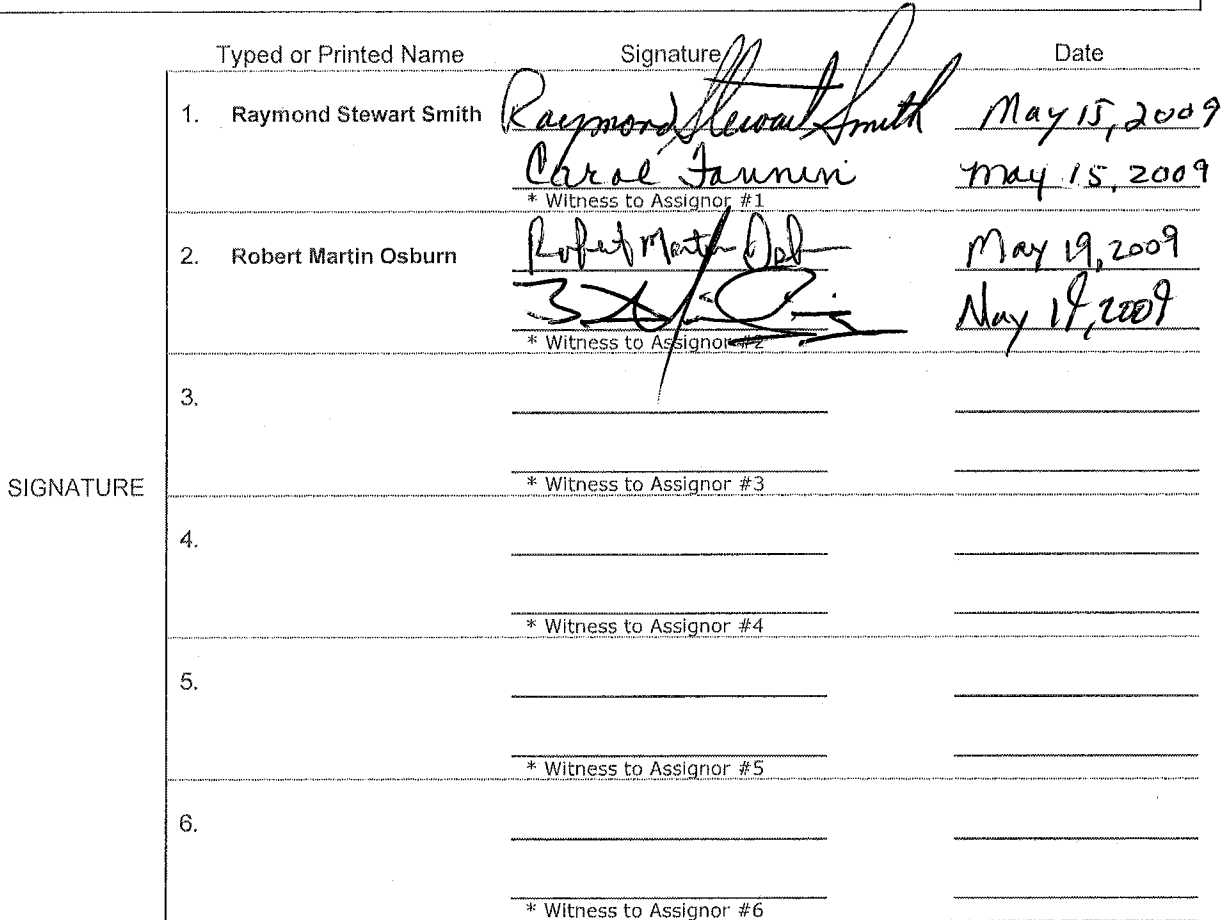 Typed or Printed Name Signature Date
1. Raymond Stewart Smith Raymond Stewart Smith May 15, 2009
Carol Fannin May 15, 2009
* Witness to Assignor #1
2. Robert Martin Osburn Robert Martin May 19, 2009
May 19, 2009
* Witness to Assignor #2
3.
* Witness to Assignor #3
SIGNATURE
4.
* Witness to Assignor #4
5.
* Witness to Assignor #5
6.
* Witness to Assignor #6